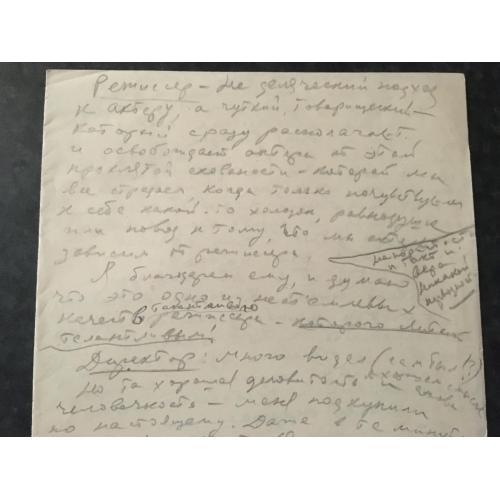 Режиссер – не деляческий подход
к актеру, а чуткий, товарищеский –
который сразу располагает
и освобождает актера от этой
проклятой скованости – которой мы
все страдаем когда только почувствуем
к себе какой-то холодок, равнодушие
или повод к тому, что мы
зависим от режиссера.
Я благодарен ему, и думаю
что это одно из неотъемлемых
качеств талантливого режиссера – которого
талантливым!
Директор: много видел (сам был!?)
Но та хорошая деловитость и
человечность – меня подкупили
по настоящему. Даже в те минуты